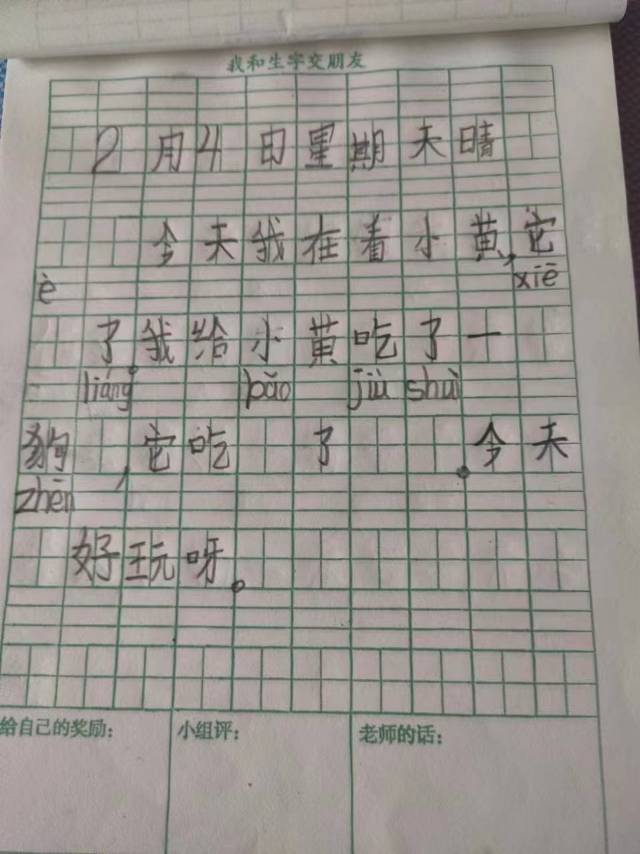 我和生字交朋友
2月4日星期天晴
今天我在看小黄,它
è xiē
了。我给小黄吃了一
liáng bǎo jiù shuì
狗,它吃 了 。今天
zhēn
好玩呀。
给自己的奖励: 小组评: 老师的话: